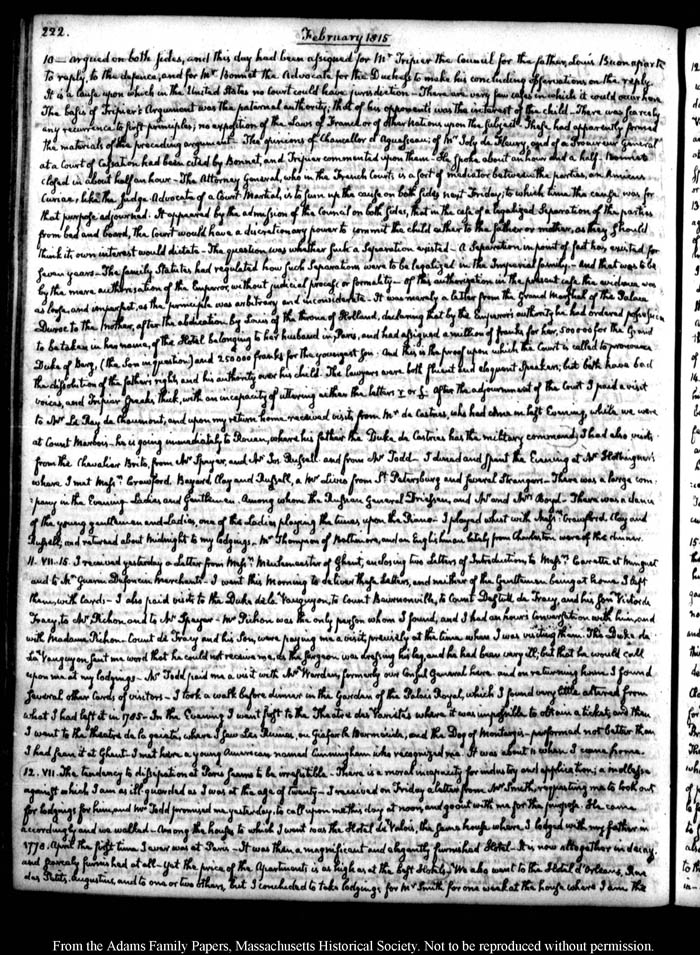 222.
February 1815
10 — argued on both sides, and this day had been assigned for Mr Tripier the Council for the father, Louis Buonaparte
to reply, to the defence; and for Mr Bonnet the Advocate for the Duchess to make his concluding observations on the reply.
It is a Cause upon which in the United States no Court could have jurisdiction — There are very few cases in which it could occur here
The basis of Tripier's Argument was the paternal authority; that of his opponents was the interest of the child — There was scarcely
any recurrence to first principles; no exposition of the Laws of France or of other Nations upon the subject. These had apparently formed
the materials of the preceding argument — The opinions of Chancellor d'Aguesseau; of Mr Joly de Fleury, and of a Procureur General
at a Court of Cassation had been cited by Bonnet, and Tripier commented upon them — He spoke about an hour and a half. Bonnet
closed in about half an hour — The Attorney General, who in the French Courts is a sort of mediator between the parties, an Amicus
Curiae, like the Judge Advocate of a Court Martial, is to sum up the cause on both sides next Friday; to which time the cause was for
that purpose adjourned. It appeared by the admission of the Council on both sides, that in the case of a legalized Separation of the parties
from bed and board, the Court would have a discretionary power to commit the child either to the father or mother, as they should
think its own interest would dictate — The question was whether such a Separation existed — A Separation in point of fact has existed for
seven years — The family Statutes had regulated how such Separations were to be legalized in the Imperial family — And that was to be
by the mere authorisation of the Emperor, without judicial process or formality — of this authorization in the present case the evidence was
as loose, and imperfect, as the principle was arbitrary and inconsiderate — It was merely a letter from the Grand Marshal of the Palace
Duroc to the Mother, after the abdication by Louis of the throne of Holland, declaring that by the Emperor's authority he had ordered possession
to be taken in her name, of the Hotel belonging to her husband in Paris, and had assigned a million of franks for her, 500000 for the Grand
Duke of Berg, (the Son in question) and 250000 franks for the youngest Son. And this is the proof upon which the Court is called to pronounce
the dissolution of the father's rights, and his authority over his child. The lawyers were both fluent and eloquent Speakers; but both have bad
voices, and Tripier speaks thick, with an incapacity of uttering either the letters or S. After the adjournment of the Court I paid a visit
to Mr Le Ray de Chaumont, and upon my return home received visits from Mr de Castries, who had been on last Evening, while we were
at Count Marbois — he is going immediately to Rouen, where his father the Duke de Castries has the military command; I had also visits
from the Chevalier Brito, from Mr Speyer, and Mr Jos Russell and from Mr Todd — I dined and spent the Evening at Mr Hottinguer's
where I met Messrs Crawford, Bayard, Clay and Russell, a Mr Lewis from St Petersburg and several Strangers — There was a large com-
pany in the Evening — Ladies and Gentlemen. Among whom the Russian General Driesen, and Mr and Mrs Boyd — There was a dance
of the young gentlemen and Ladies, one of the Ladies playing the tunes upon the Piano — I played whist with Messrs Crawford, Clay and
Russell, and returned about midnight to my lodgings. Mr Thompson of Baltimore, and an Englishman lately from Charleston were of the dinner.
11. VII-15. I received yesterday a Letter from Messrs Meulemeester of Ghent, enclosing two Letters of Introduction to Messrs Carrette et Minguet
and to Mr Guerin Defoncin Merchants — I went this Morning to deliver these Letters, and neither of the Gentlemen being at home I left
them, with Cards — I also paid visits to the Duke de la Vauguyon, to Count Bournonville, to Count Destutt de Tracy, and his Son Victor de
Tracy, to Mr Pichon and to Mr Speyer — Mr Pichon was the only person whom I found, and I had an hour's Conversation with him, and
with Madame Pichon — Count de Tracy and his Son, were paying me a visit, precisely at the time when I was visiting them. The Duke de
La Vauguyon sent me word that he could not receive me, as the surgeon was dressing his leg, and he had been very ill; but that he would call
upon me at my lodgings — Mr Todd paid me a visit with Mr Warden, formerly our Consul General here — and on returning home I found
several other Cards of visitors — I took a walk before dinner in the Garden of the Palais Royal, which I found very little altered from
what I had left it in 1785 — In the Evening I went first to the Theatre des Varietés where it was impossible to obtain a ticket; and then
I went to the theatre de la gaieté, where I saw Les Ruines, ou Giafar le Barmecide, and the Dog of Montargis — performed not better than
I had seen it at Ghent — I met here a young American named Cunningham who recognized me. It was about 11 when I came home.
12. VII. The tendency to dissipation at Paris seems to be irresistible — There is a moral incapacity for industry and application; a mollesse
against which I am as ill-guarded as I was at the age of twenty — I received on Friday a letter from Mr Smith, requesting me to look out
for lodgings for him, and Mr Todd promised me yesterday, to call upon me this day at noon, and go out with me for the purpose. He came
accordingly and we walked — Among the houses to which I went was the Hotel de Valois, the same house where I lodged with my father in
1778. April the first time I ever was at Paris — It was then a magnificent and elegantly furnished Hotel — It is now altogether in decay,
and scarcely furnished at all — Yet the price of the Apartments is as high as at the best Hotels. We also went to the Hotel d'Orleans, Rue
des Petits Augustins, and to one or two others, but I concluded to take lodgings for Mr Smith for one week at the house where I am the
From the Adams Family Papers, Massachusetts Historical Society. Not to be reproduced without permission.